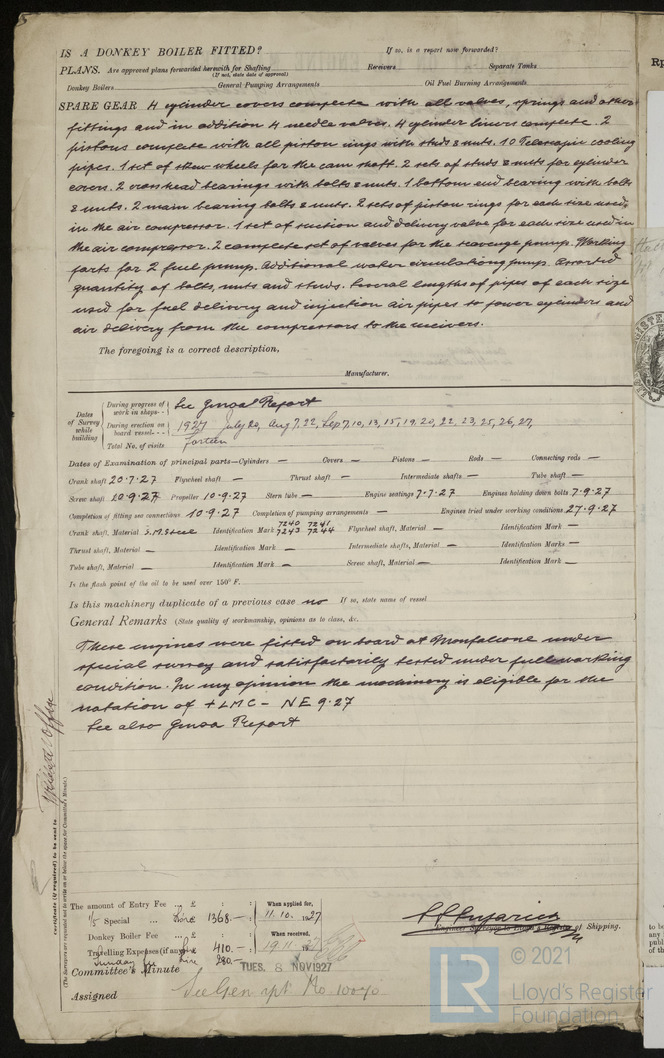 IS A DONKEY BOILER FITTED? If so, is a report now forwarded?
PLANS. Are approved plans forwarded herewith for Shafting Receivers Separate Tanks
(If not, state date of approval)
Donkey Boilers General Pumping Arrangements Oil Fuel Burning Arrangements
SPARE GEAR 4 cylinder covers complete with all valves, springs and other
fittings and in addition 4 needle valves. 4 cylinder liners complete. 2
pistons complete with all piston rings with studs & nuts. 10 Telescopic cooling
pipes. 1 set of skew wheels for the cam shaft. 2 sets of studs & nuts for cylinder
covers. 2 crosshead bearings with bolts & nuts. 1 bottom end bearing with bolts
& nuts. 2 main bearing bolts & nuts. 2 sets of piston rings for each size used
in the air compressor. 1 set of suction and delivery valve for each size used in
the air compressor. 2 complete set of valves for the scavenge pump. Working
parts for 2 fuel pump. Additional water circulating pump. Assorted
quantity of bolts, nuts and studs. Several lengths of pipes of each size
used for fuel delivery and injection air pipes to power cylinders and
air delivery from the compressors to the recivers.
The foregoing is a correct description,
Manufacturer.
Dates of Survey while building
During progress of work in shops - - See Genoa Report
During erection on board vessel - - - 1927 July 20, Aug 7, 22, Sep 7, 10, 13, 15, 19, 20, 22, 23, 25, 26, 27,
Total No. of visits forteen
Dates of Examination of principal parts—Cylinders — Covers — Pistons — Rods — Connecting rods —
Crank shaft 20.7.27 Flywheel shaft — Thrust shaft — Intermediate shafts — Tube shaft —
Screw shaft 10.9.27 Propeller 10.9.27 Stern tube — Engine seatings 7.7.27 Engines holding down bolts 7.9.27
Completion of fitting sea connections 10.9.27 Completion of pumping arrangements — Engines tried under working conditions 27.9.27
Crank shaft, Material S.M. Steel Identification Mark 7240 7241 7243 7244 Flywheel shaft, Material — Identification Mark —
Thrust shaft, Material — Identification Mark — Intermediate shafts, Material — Identification Marks —
Tube shaft, Material — Identification Mark — Screw shaft, Material — Identification Mark —
Is the flash point of the oil to be used over 150° F.
Is this machinery duplicate of a previous case no If so, state name of vessel
General Remarks (State quality of workmanship, opinions as to class, &c.
These engines were fitted on board at Monfalcone under
special survey and satisfactorily tested under full working
condition. In my opinion the machinery is eligible for the
notation of + LMC - NE 9.27
See also Genoa Report
Certificate (if required) to be sent to
(The Surveyors are requested not to write on or below the space for Committee's Minute.)
The amount of Entry Fee ... £ : : When applied for,
1/5 Special ... Lire 1368.— : 11.10.1927
Donkey Boiler Fee ... £ : : When received,
Travelling Expenses (if any) £ 410.— 19.11
Sunday fee Lire 280.—
Engineer Surveyor to Lloyd's Register of Shipping.
Committee's Minute TUES. 8 NOV 1927
Assigned See Gen rpt. No
© 2021
LR
Lloyd's Register
Foundation